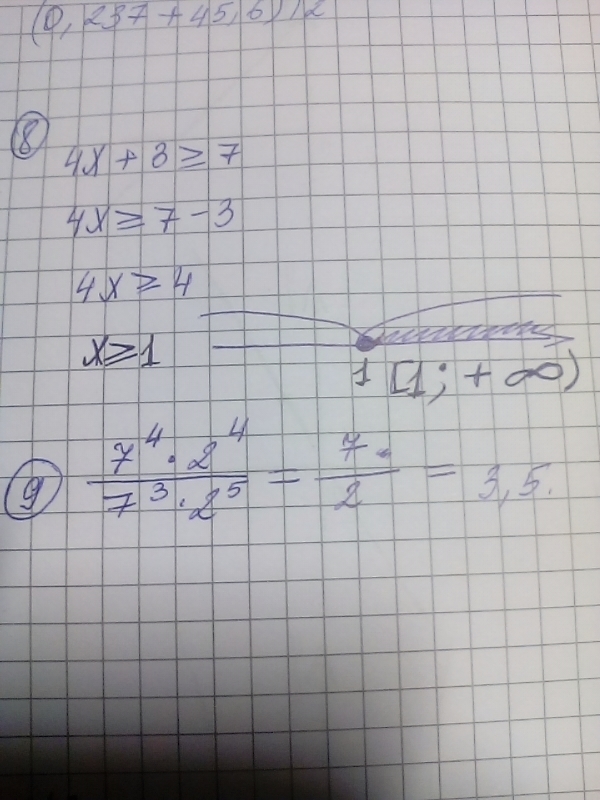 (0,237+45,6)/2
8
4x + 3 ≥ 7
4x ≥ 7 - 3
4x ≥ 4
x ≥ 1
1 [1; + ∞)
9 7^4 · 2^4 / 7^3 · 2^5 = 7 / 2 = 3,5.